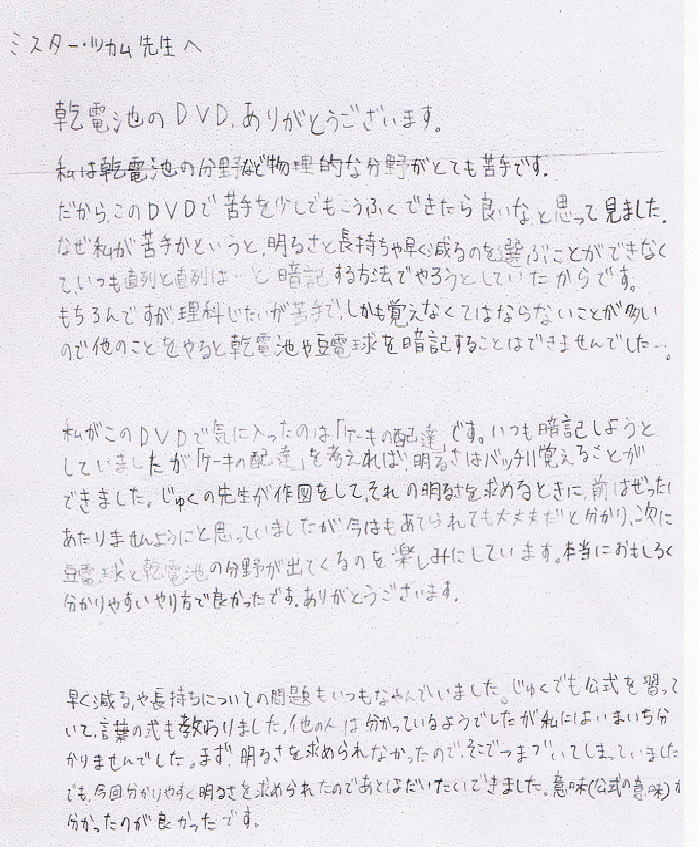 ミスター・ツカム先生へ
乾電池のDVD、ありがとうございます。
私は乾電池の分野など物理的な分野がとても苦手です。
だから、このDVDで苦手を少しでもこうふくできたら良いな、と思って見ました。
なぜ私が苦手かというと、明るさと長持ちや早く減るのを選ぶことができなく
て、いつも直列と直列は…と暗記する方法でやろうとしていたからです。
もちろんですが、理科じたいが苦手で、しかも覚えなくてはならないことが多い
ので他のことをやると乾電池や豆電球を暗記することはできませんでした…。
私がこのDVDで気に入ったのは「ケーキの配達」です。いつも暗記しようと
していましたが「ケーキの配達」を考えれば明るさはバッチリ覚えることが
できました。じゅくの先生が作図をして、それの明るさを求めるときに、前はぜったい
あたりませんようにと思っていましたが今はもあてられても大丈夫だと分かり、次に
豆電球と乾電池の分野が出てくるのを楽しみにしています。本当におもしろく
分かりやすいやり方で良かったです。ありがとうございます。
早く減る、や長持ちについての問題もいつもなやんでいました。じゅくでも公式を習って
いて、言葉の式も教わりました。他の人は分かっているようでしたが私にはいまいち分
かりませんでした。まず、明るさを求められなかったので、そこでつまづいてしまっていました
でも、今回分かりやすく明るさを求められたのであとはだいたいできました。意味(公式の意味)が
分かったのが良かったです。